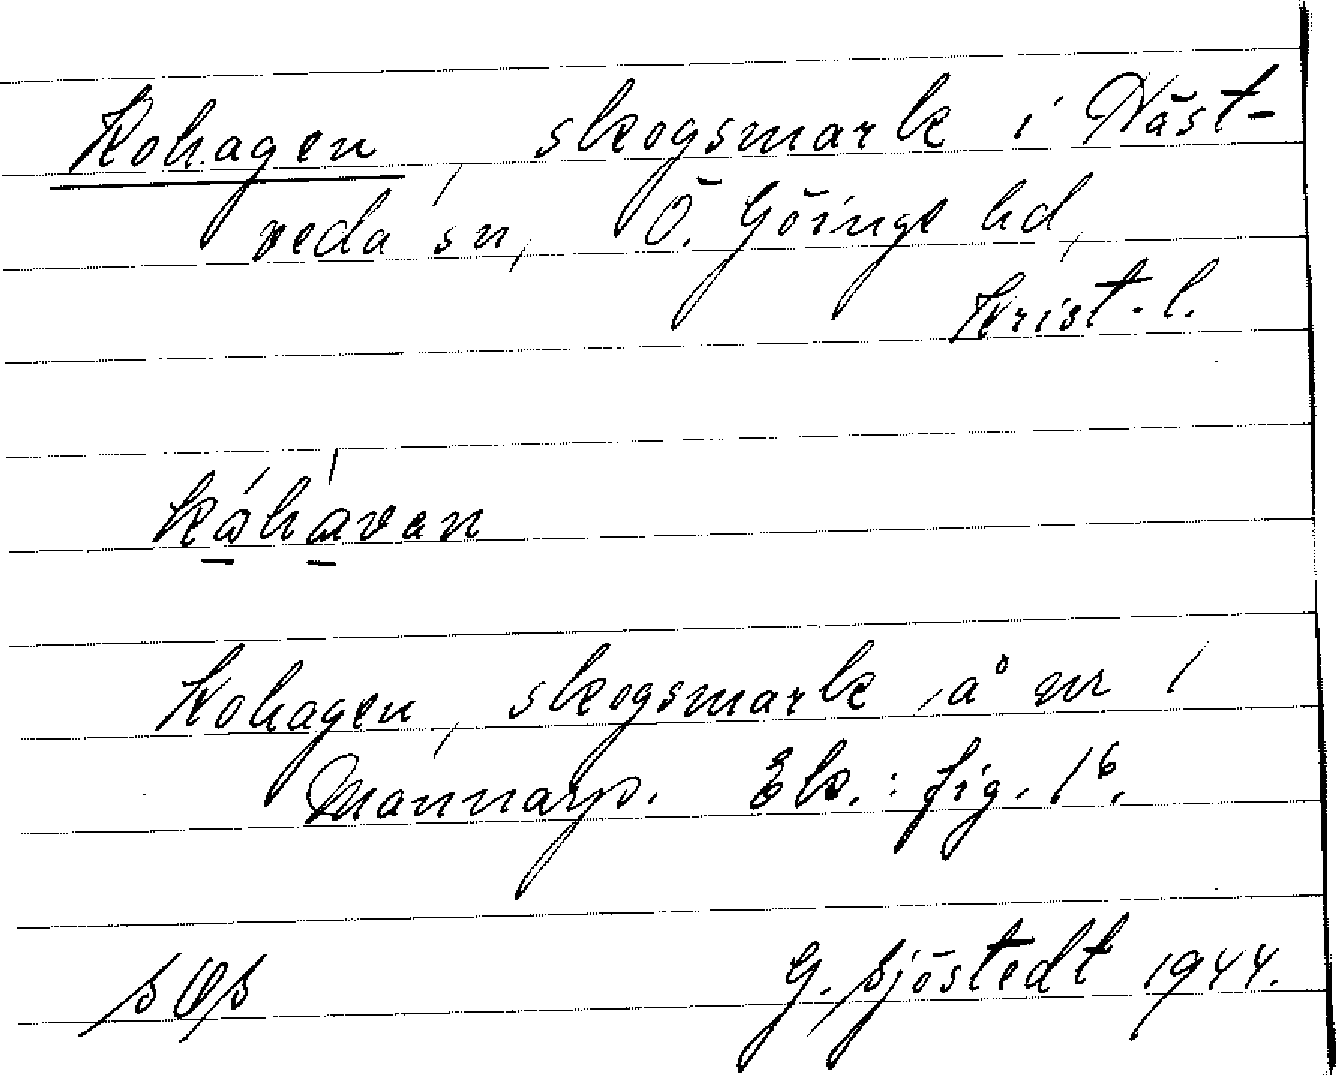 Kohagen, skogsmark i Näst-
veda sn, Ö. Göinge hd,
Krist. l.
Kohagen, skogsmark å nr 1
Mannarp. Ek.: fig. 16.
G. Sjöstedt 1944.